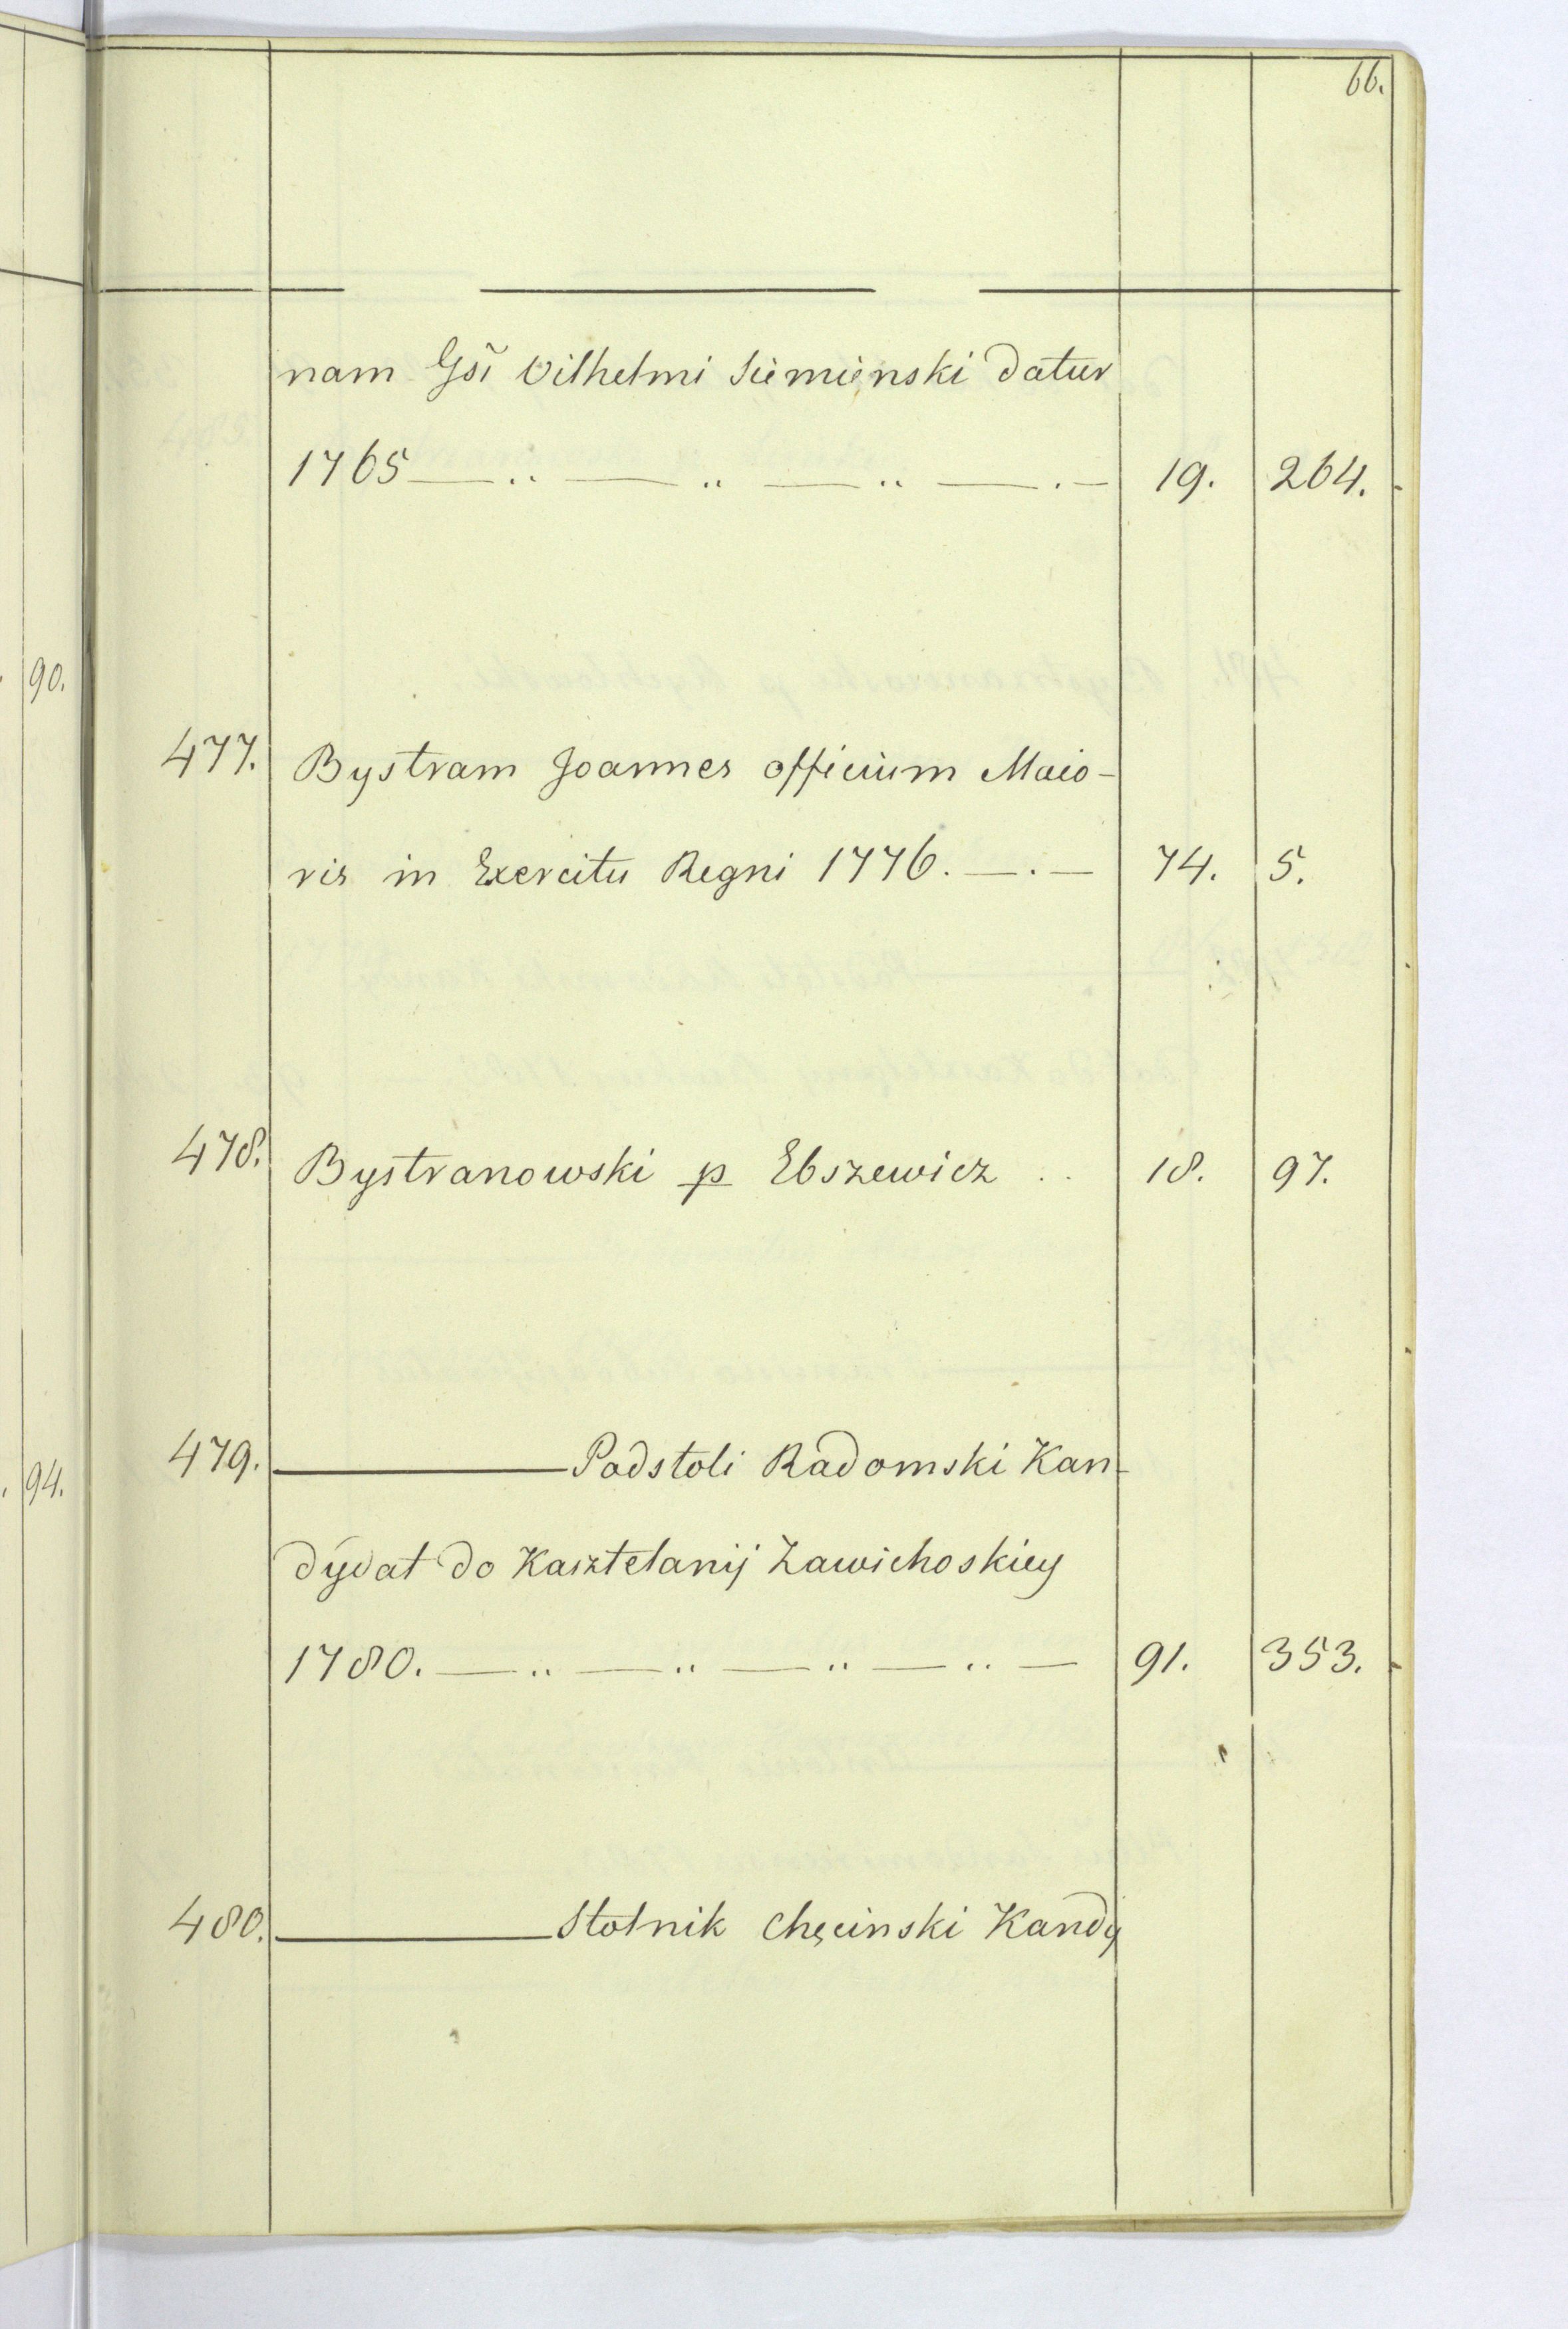 66.
nam Gsi Vilhelmi Siemienski datur
1765 — .. — .. — .. — . — 19. 264.
90.
477. Bystram Joannes officium Maio-
ris in Exercitu Regni 1776. — . — 74. 5.
478. Bystranowski p Ebszewicz .. 18. 97.
479. ——— Podstoli Radomski Kan-
94.
dydat do Kasztelanij Zawichoskiey
1780. — .. — .. — .. — .. — 91. 353.
480. ——— Stolnik Chęcinski Kandy